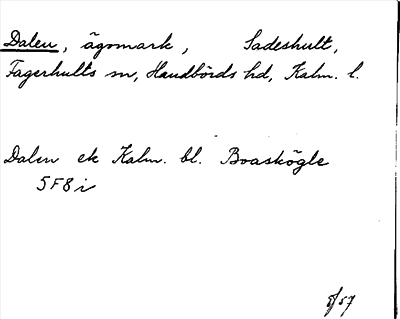 Dalen, ägomark, Sadeshult,
Fagerhults sn, Handbörds hd, Kalm. l.
Dalen ek Kalm. bl. Boaskögle
5F8i
/57